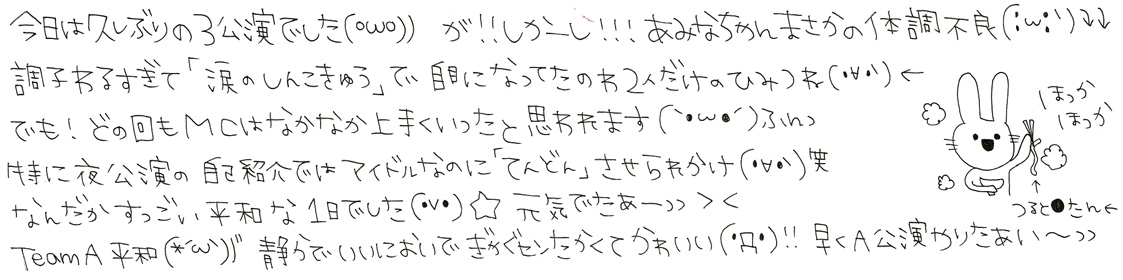 今日は久しぶりの3公演でした(owo)) が!!しかーし!!!あみなちゃんまさかの体調不良(;ω;`)↓↓
調子わるすぎて「涙のしんこきゅう」で白目になってたのわ2人だけのひみつね(･∀･`)←
でも!どの回もMCはなかなか上手くいったと思われます(`･ω･´)ふんっ
特に夜公演の自己紹介ではアイドルなのに「てんどん」させられかけ(･∀･`)笑
なんだかすっごい平和な1日でした(･v･)☆ 元気でたあーっっ><
TeamA平和(*´ω`)ｼﾞ 静かでいいにおいでぎゃぐセンたかくてかわいい(･Д･)!!早くA公演やりたあい～っっ
ほっか
ほっか
↑
つると●たん←